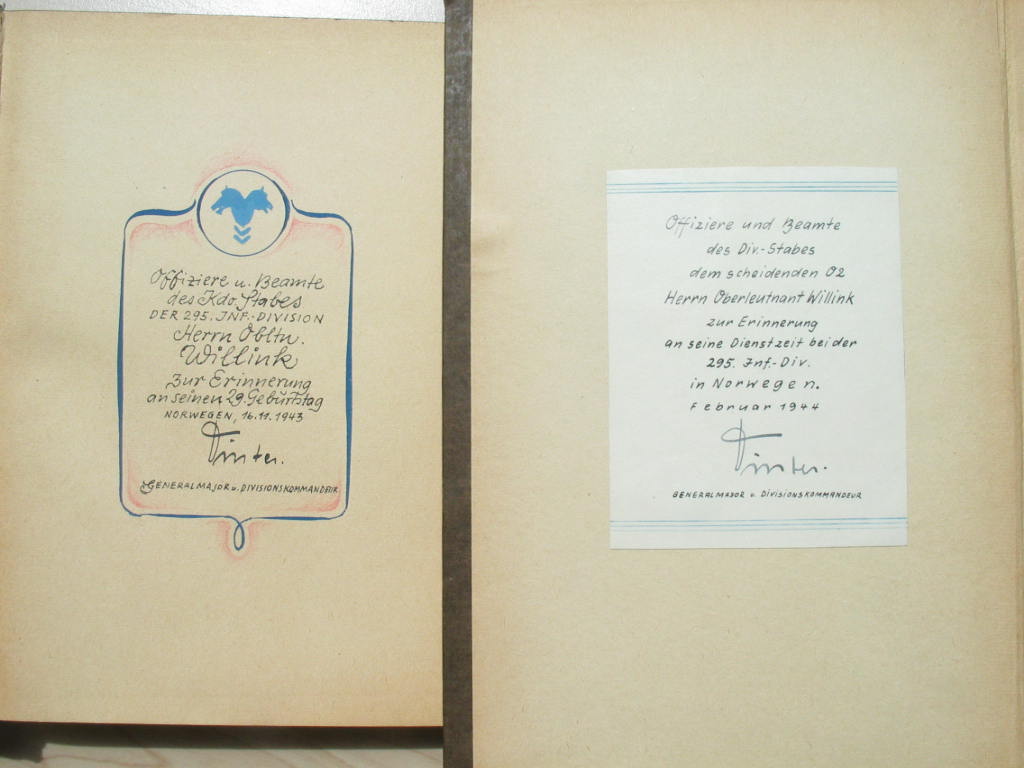 Offiziere u. Beamte
des Kdo. Stabes
DER 295. INF.-DIVISION
Herrn Obltn.
Willink
zur Erinnerung
an seinen 29. Geburtstag
NORWEGEN, 16.11.1943
GENERALMAJOR u. DIVISIONSKOMMANDEUR
Offiziere und Beamte
des Div.-Stabes
dem scheidenden O2
Herrn Oberleutnant Willink
zur Erinnerung
an seine Dienstzeit bei der
295. Inf.-Div.
in Norwegen.
Februar 1944
GENERALMAJOR u. DIVISIONSKOMMANDEUR